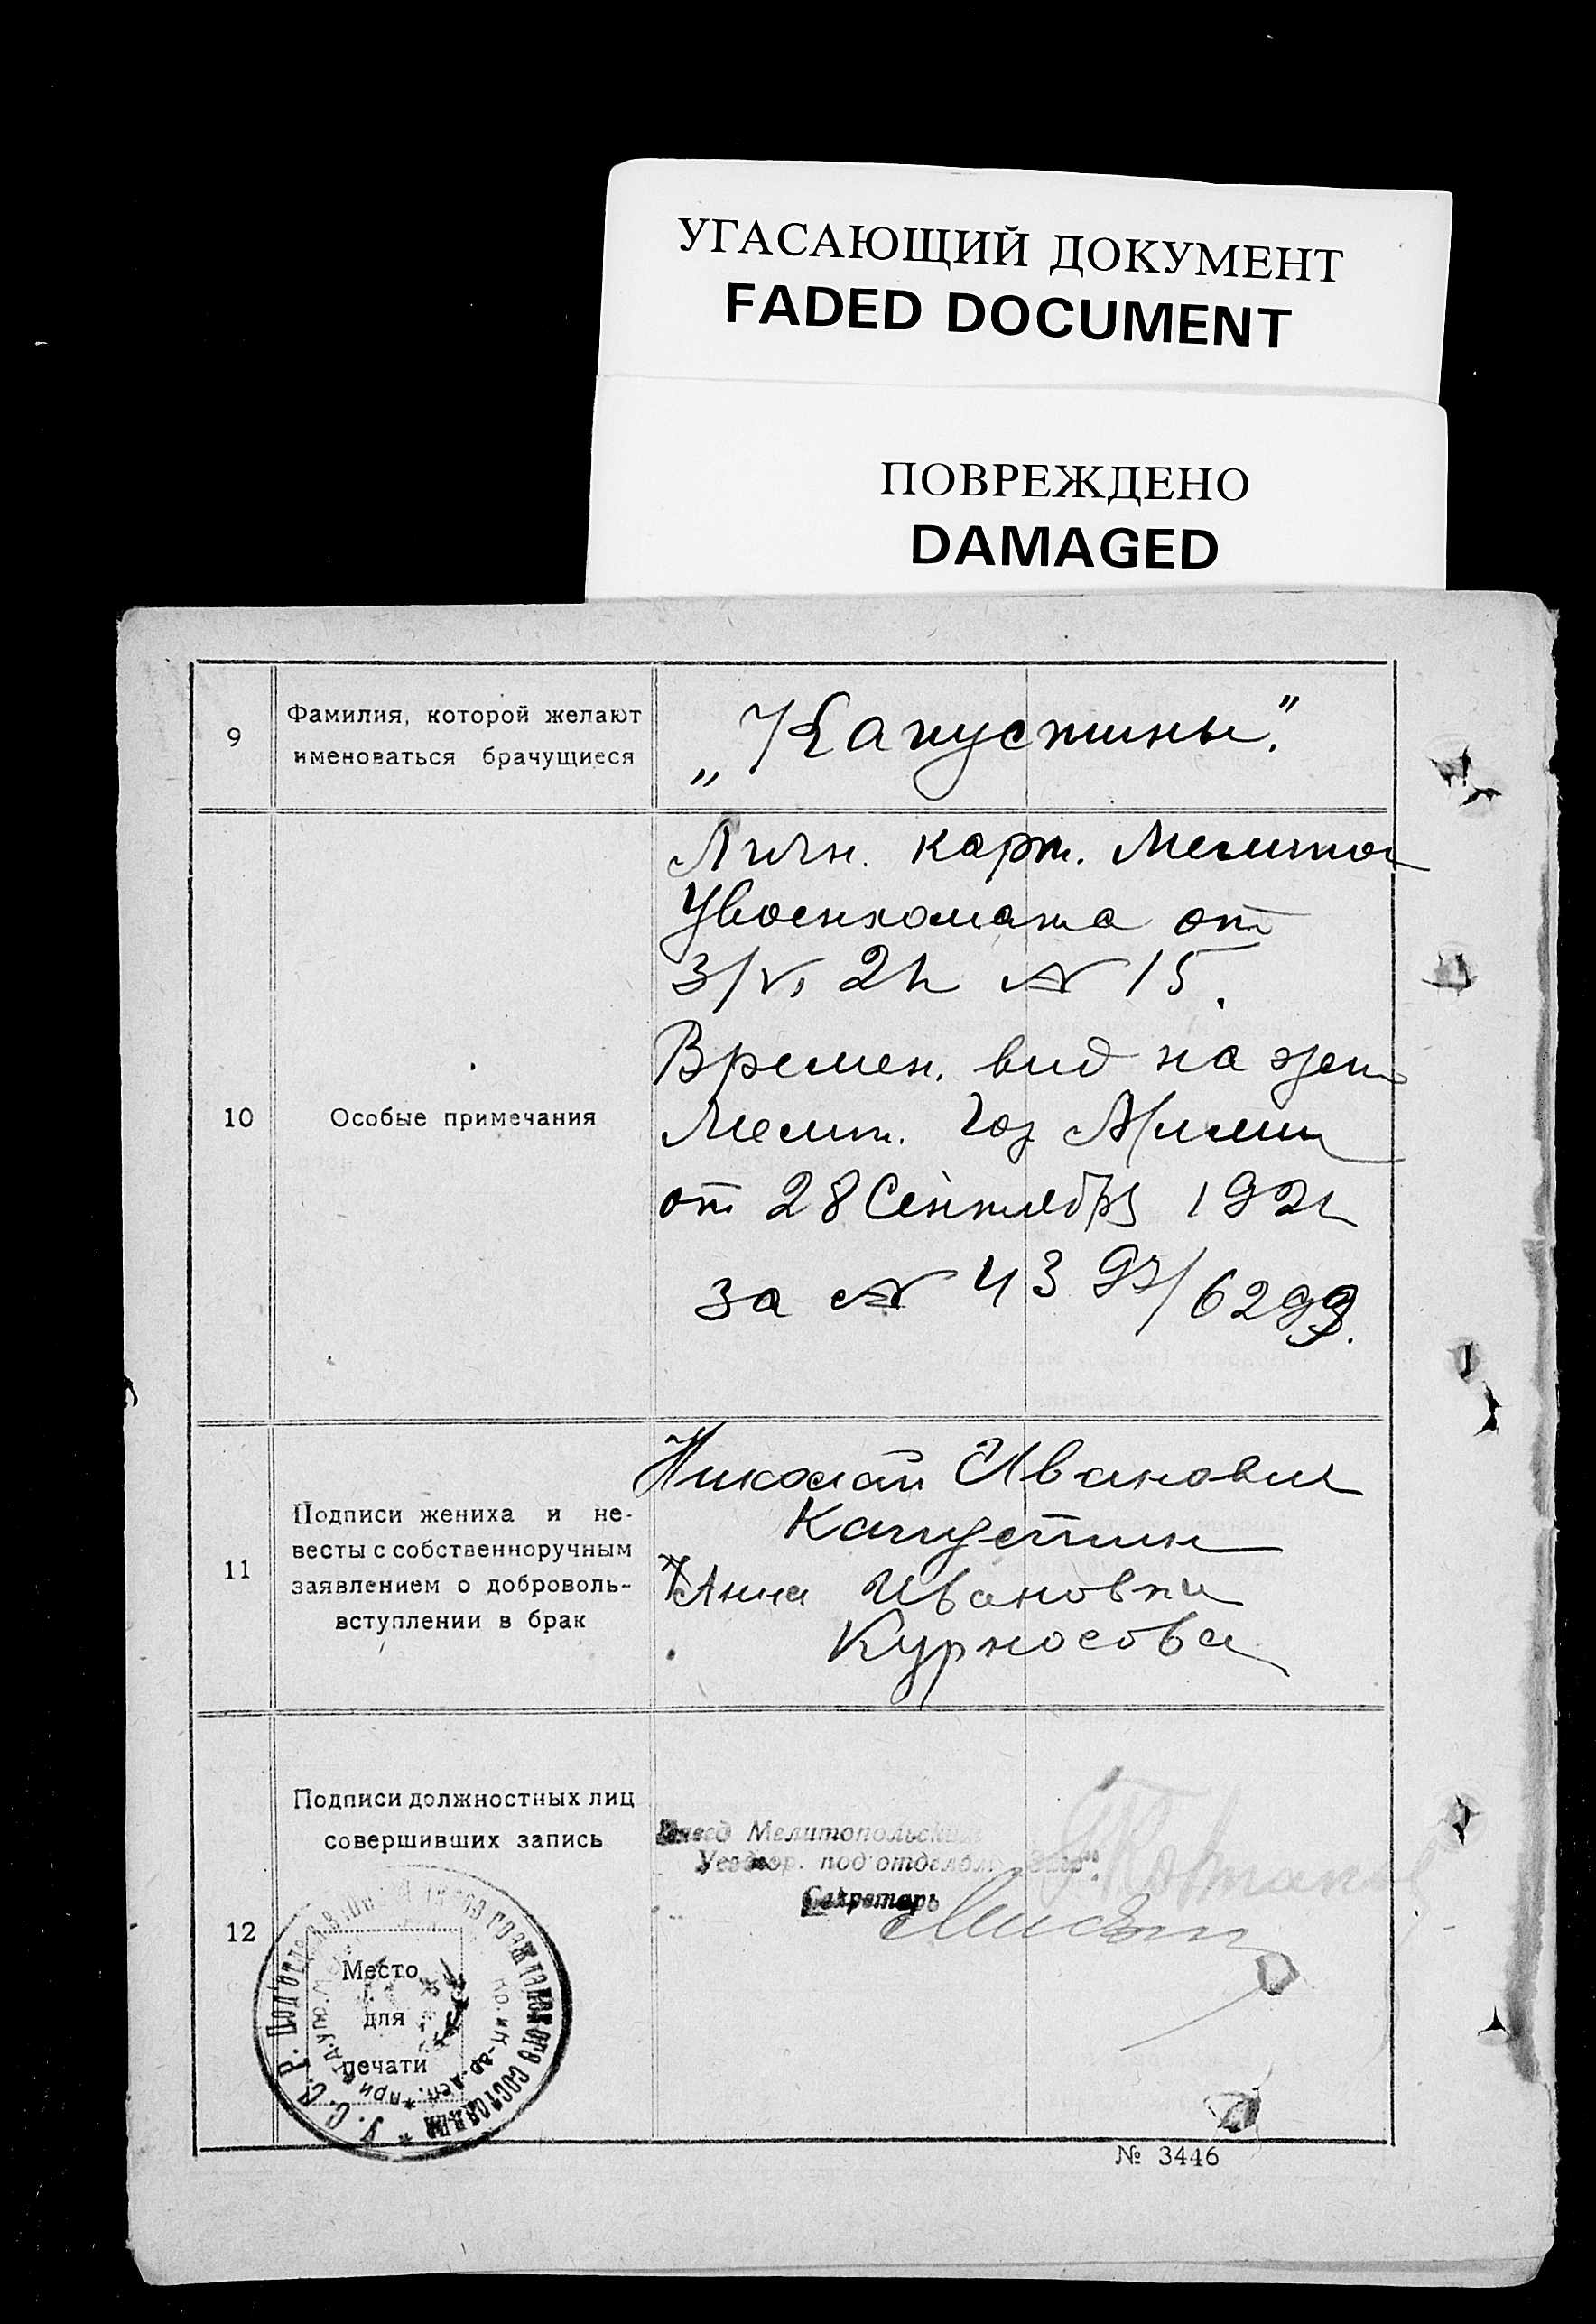 УГАСАЮЩИЙ ДОКУМЕНТ
FADED DOCUMENT
ПОВРЕЖДЕНО
DAMAGED
9
Фамилия, которой желают
именоваться брачущиеся
„Капустины."
10
Особые примечания
Личн. карт. Мелитоп
Увоенкомата от
3/VI 21 № 15.
Времен. вид на жит
Мелит. Гор Милиц
от 28 Сентября 1921
за № 4397/6299.
11
Подписи жениха и не-
весты с собственноручным
заявлением о доброволь-
вступлении в брак
Николай Иванович
Капустин
Анна Ивановна
Курносова
12
Подписи должностных лиц
совершивших запись
Мелитопольским
под'отделом
Секретарь
Место
для
печати
У. С. С. Р. Под'отдел гражданского состояния
при
№ 3446